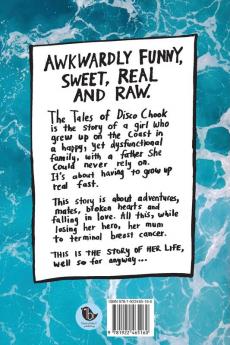 AWKWARDLY FUNNY,
SWEET, REAL
AND RAW.
The Tales of Disco Chook
is the story of a girl who
grew up on the Coast in
a happy, yet dysfunctional
family, with a father she
could never rely on.
It's about having to grow up
real fast.
This story is about adventures,
males, broken hearts and
falling in love. All this, while
losing her hero, her mum
to terminal breast cancer.
THIS IS THE STORY OF HER LIFE,
well so far anyway...
9 781922 461162